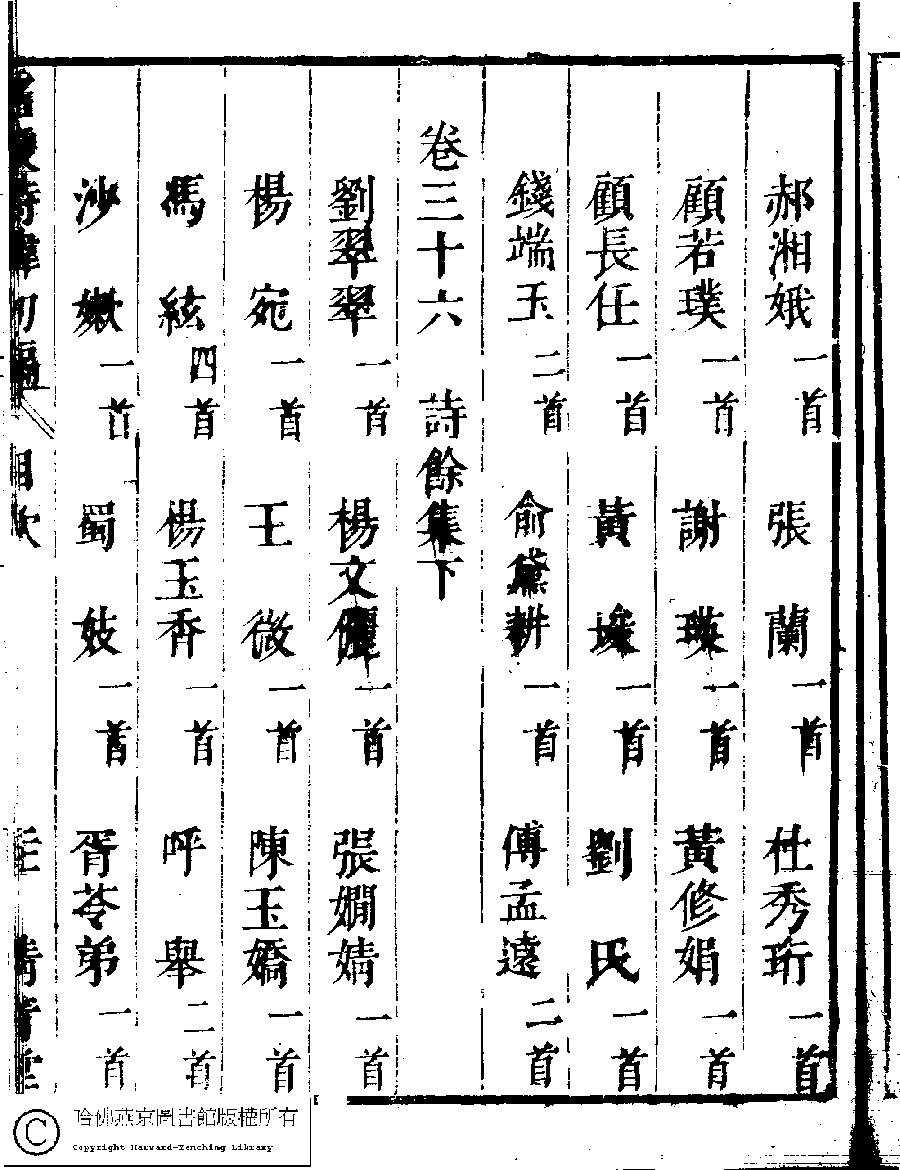 郝湘娥一首 張蘭一首 杜秀珩一首
顧若璞一首 謝瑛一首 黃修娟一首
顧長任一首 黃埈一首 劉氏一首
錢端玉二首 俞黛耕一首 傅孟遠二首
卷三十六 詩餘集下
劉翠翠一首 楊文儷一首 張嫺婧一首
楊宛一首 王微一首 陳玉嬌一首
馬絃四首 楊玉香一首 呼舉二首
沙嫩一首 蜀妓一首 胥苓弟一首
名媛詩緯初編 目次 清音堂
哈佛燕京圖書館版權所有
Copyright Harvard-Yenching Library